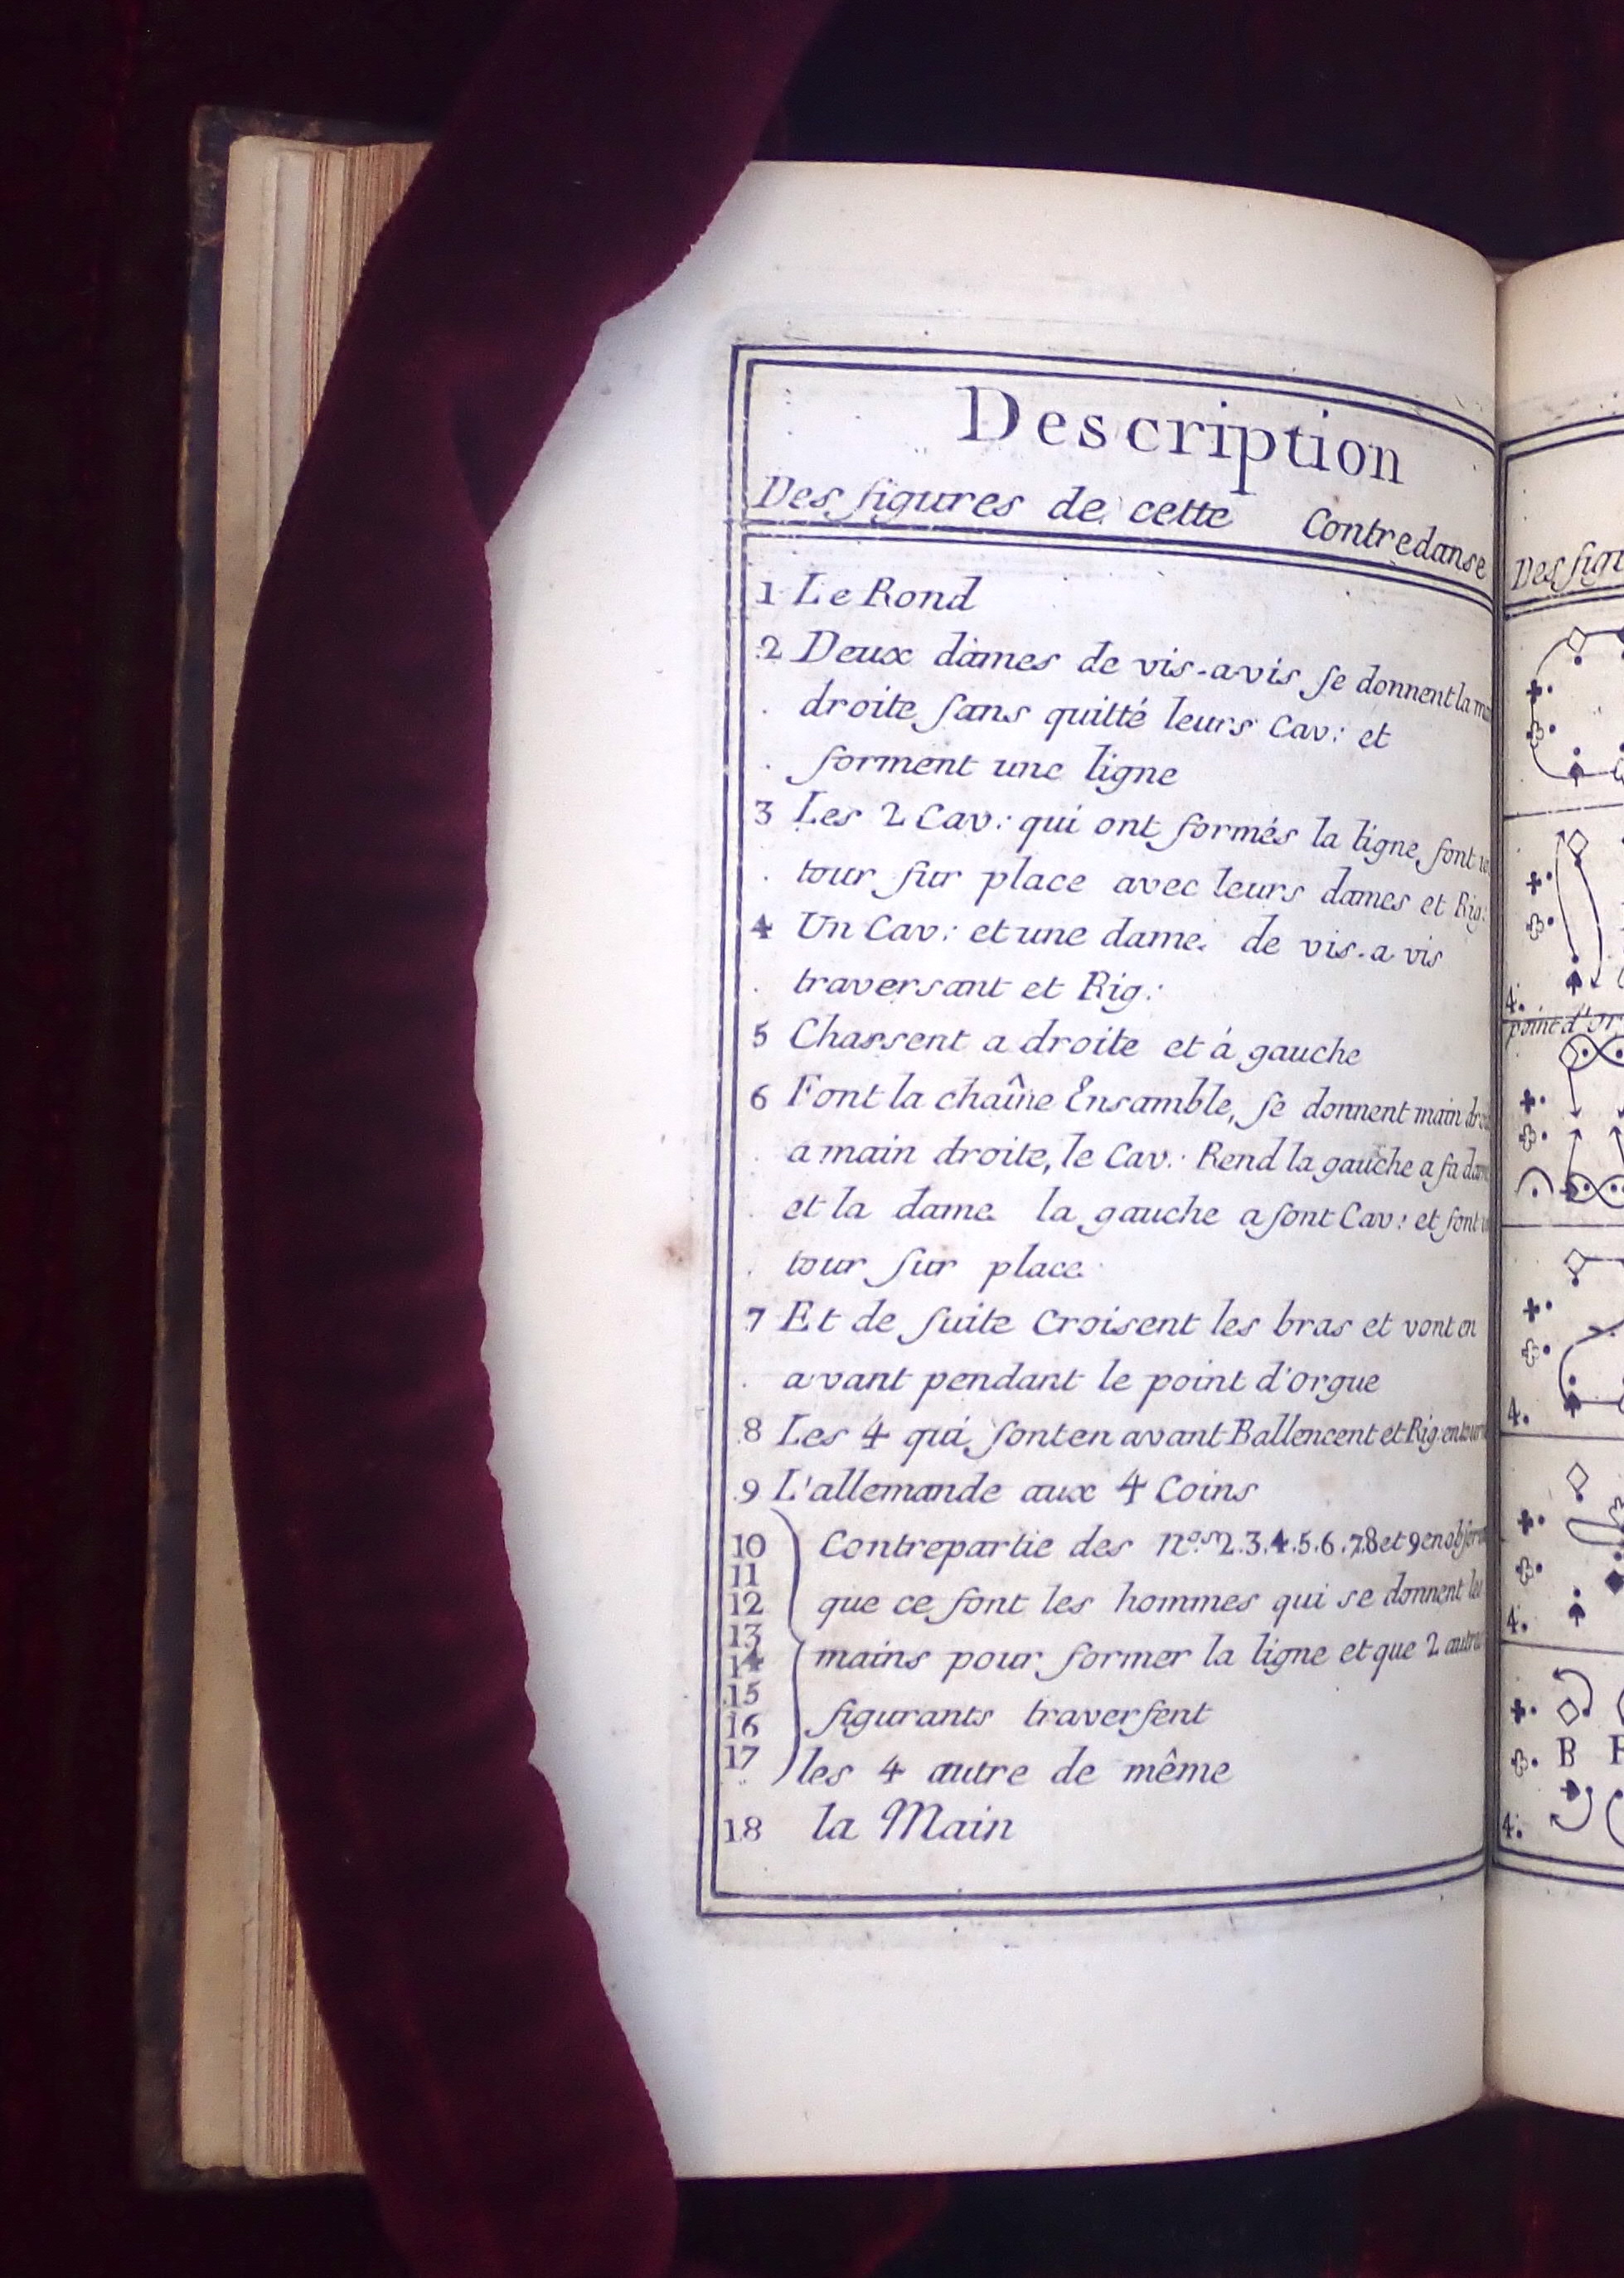 Description
Des figures de cette Contredanse
1 Le Rond
2 Deux dames de vis-a-vis se donnent la
droite sans quitté leurs Cav: et
forment une ligne
3 Les 2 Cav: qui ont formés la ligne font
tour sur place avec leurs dames et Rig:
4 Un Cav: et une dame de vis-a vis
traversant et Rig:
5 Chassent a droite et á gauche
6 Font la chaîne Ensamble, se donnent main
a main droite, le Cav: Rend la gauche a sa
et la dame la gauche a sont Cav: et font
tour sur place
7 Et de suite Croisent les bras et vont en
avant pendant le point d'orgue
8 Les 4 qui sont en avant Ballencent et Rig. en
9 L'allemande aux 4 Coins
10 Contrepartie des nos 2.3.4.5.6.7.8 et 9 en
11
12 que ce sont les hommes qui se donnent les
13
14 mains pour former la ligne et que 2
15
16 figurants traversent
17 les 4 autre de même
18 la Main
Des
4.
point d'
4.
4.
B
4.